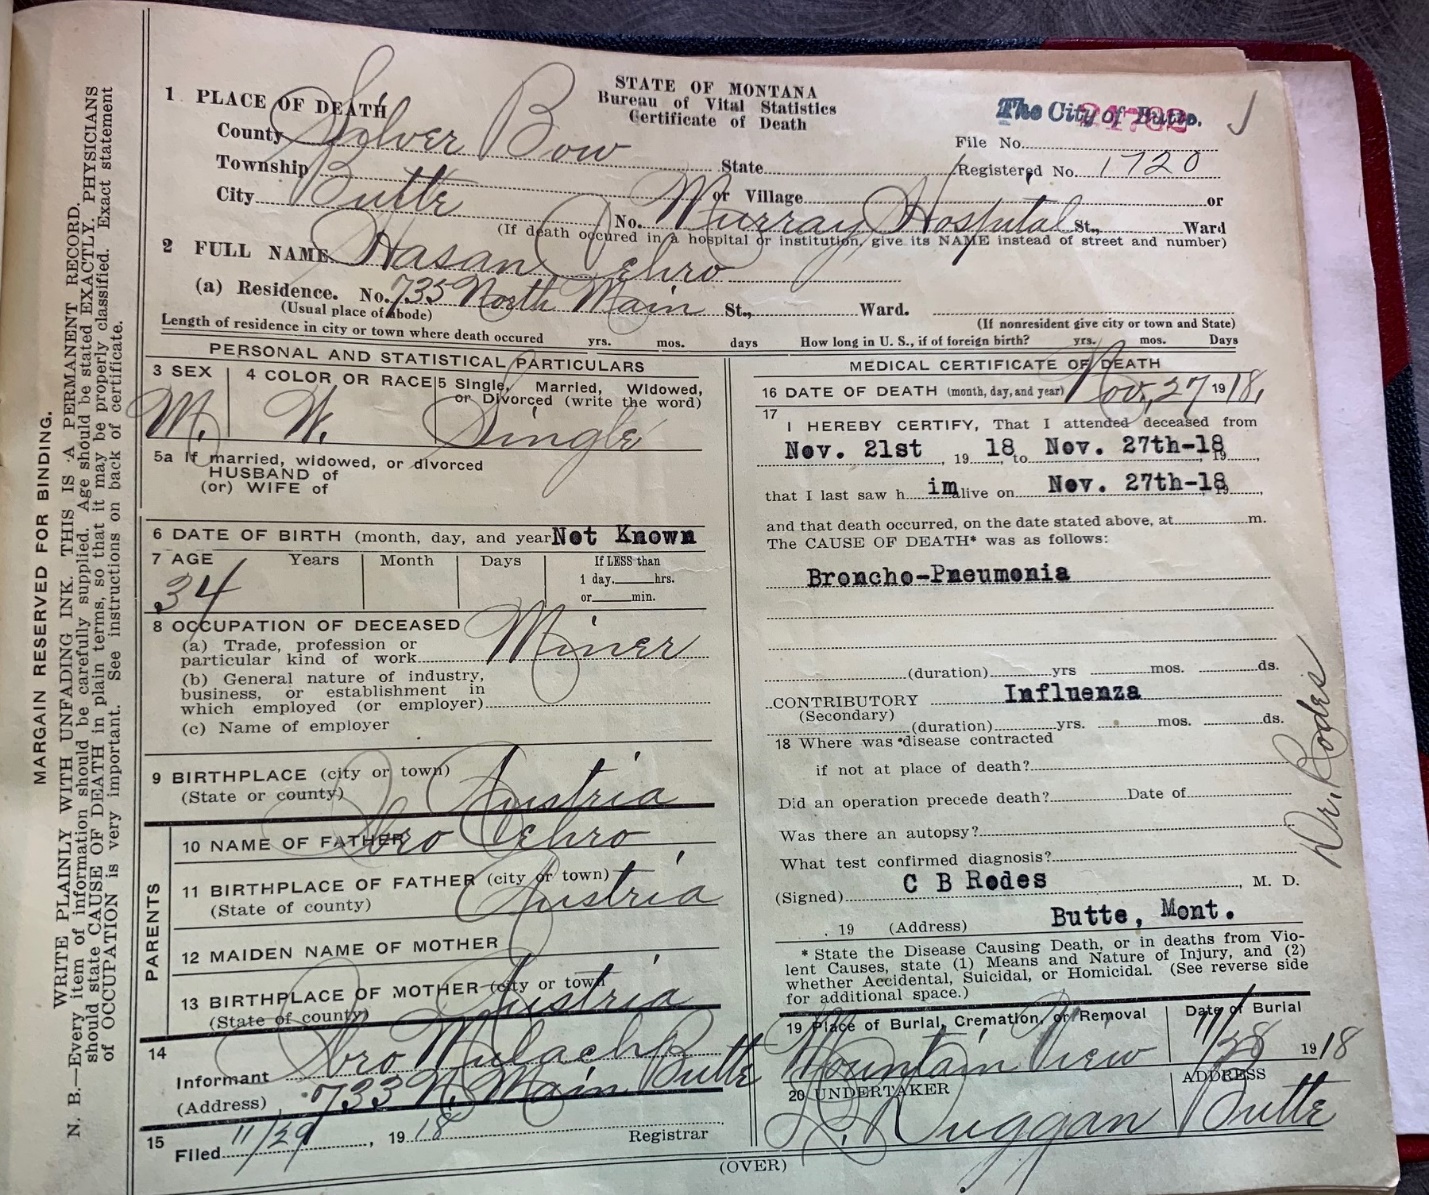 STATE OF MONTANA
Bureau of Vital Statistics
Certificate of Death
The City of Butte.
1 PLACE OF DEATH
County Silver Bow
File No.
Township State Registered No. 1720
City Butte or Village or
No. Murray Hospital St., Ward
(If death occured in a hospital or institution, give its NAME instead of street and number)
2 FULL NAME Hasan Cehro
(a) Residence. No. 735 North Main St., Ward.
(Usual place of abode) (If nonresident give city or town and State)
Length of residence in city or town where death occured yrs. mos. days How long in U. S., if of foreign birth? yrs. mos. Days
PERSONAL AND STATISTICAL PARTICULARS
3 SEX 4 COLOR OR RACE 5 Single, Married, Widowed,
or Divorced (write the word)
M. W. Single
5a If married, widowed, or divorced
HUSBAND of
(or) WIFE of
6 DATE OF BIRTH (month, day, and year Not Known
7 AGE Years Month Days If LESS than
34 1 day, hrs.
or min.
8 OCCUPATION OF DECEASED
(a) Trade, profession or
particular kind of work Miner
(b) General nature of industry,
business, or establishment in
which employed (or employer)
(c) Name of employer
9 BIRTHPLACE (city or town)
(State or county) Austria
PARENTS
10 NAME OF FATHER Ibro Cehro
11 BIRTHPLACE OF FATHER (city or town)
(State of county) Austria
12 MAIDEN NAME OF MOTHER
13 BIRTHPLACE OF MOTHER (city or town
(State of county) Austria
14
Informant Ibro
(Address) 733 N. Main Butte
15
Filed 11/29, 1918 Registrar
MEDICAL CERTIFICATE OF DEATH
16 DATE OF DEATH (month, day, and year) Nov. 27 1918,
17
I HEREBY CERTIFY, That I attended deceased from
Nov. 21st, 19 18 to Nov. 27th-18 19
that I last saw h im alive on Nov. 27th-18 19
and that death occurred, on the date stated above, at m.
The CAUSE OF DEATH* was as follows:
Broncho-Pneumonia
(duration) yrs mos. ds.
CONTRIBUTORY Influenza
(Secondary)
(duration) yrs. mos. ds.
18 Where was disease contracted
if not at place of death?
Did an operation precede death? Date of
Was there an autopsy?
What test confirmed diagnosis?
(Signed) C B Rodes, M. D.
, 19 (Address) Butte, Mont.
* State the Disease Causing Death, or in deaths from Vio-
lent Causes, state (1) Means and Nature of Injury, and (2)
whether Accidental, Suicidal, or Homicidal. (See reverse side
for additional space.)
19 Place of Burial, Cremation, or Removal Date of Burial
Mountain View 11/28 1918
20 UNDERTAKER ADDRESS
L. Duggan Butte
(OVER)
Dr. Rodes
MARGAIN RESERVED FOR BINDING.
WRITE PLAINLY WITH UNFADING INK. THIS IS A PERMANENT RECORD.
N. B.—Every item of information should be carefully supplied. Age should be stated EXACTLY. PHYSICIANS
should state CAUSE OF DEATH in plain terms, so that it may be properly classified. Exact statement
of OCCUPATION is very important. See instructions on back of certificate.